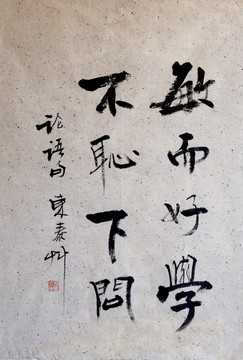 敏而好學
不恥下問
论语句 東泰艸